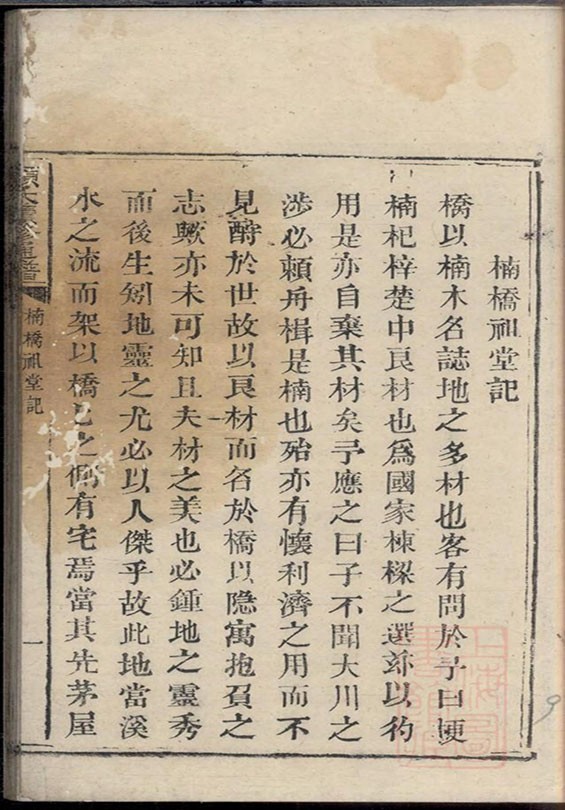 楠橋祖堂記
橋以楠木名誌地之多材也客有問於予曰梗
楠杞梓楚中良材也爲國家棟樑之選茲以杓
用是亦自棄其材矣予應之曰子不聞大川之
涉必賴舟楫是楠也殆亦有懷利濟之用而不
見酬於世故以良材而名於橋以隐寓抱負之
志歟亦未可知且夫材之美也必鍾地之靈秀
而後生矧地靈之尤必以人傑乎故此地當溪
水之流而架以橋之側有宅焉當其先茅屋
楠橋祖堂記
一
上海圖
9